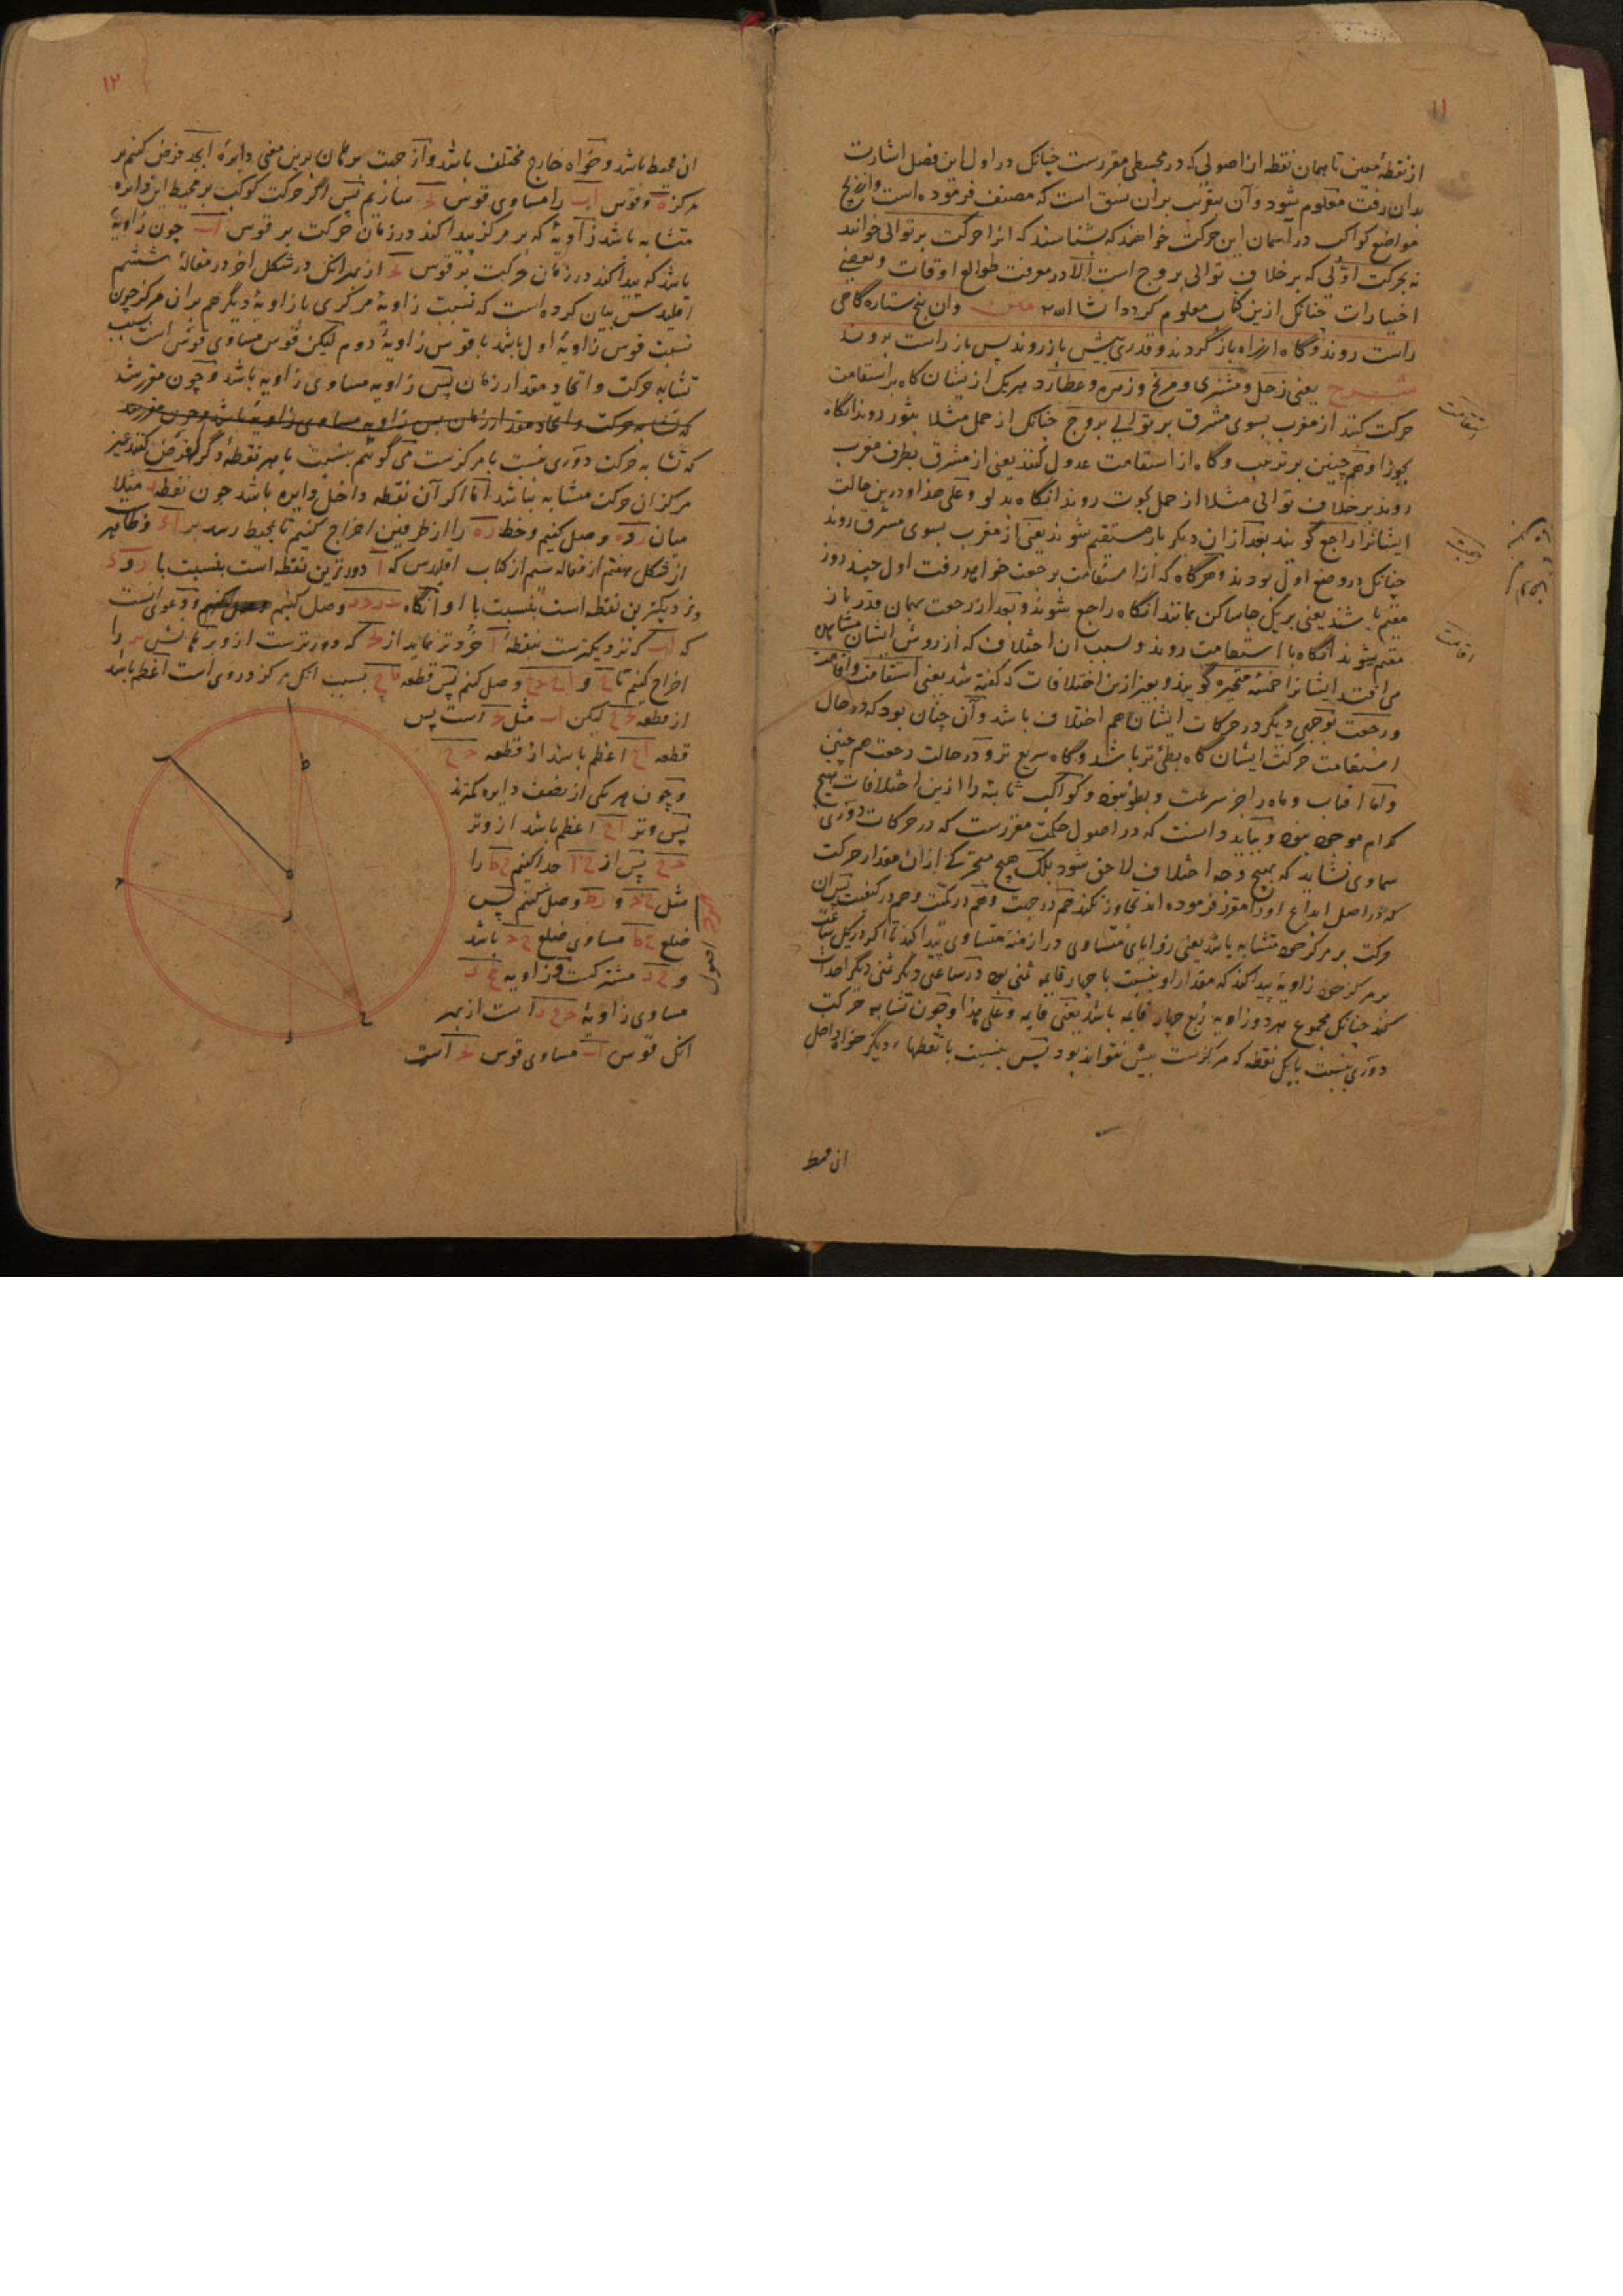 ۱۱
از نقطهٔ معین تا همان نقطه از اصولی که در مجسطی مقررست چنانک در اول این فصل اشارت
بدان رفت معلوم شود و آن بتقریب بران نسق است که مصنف فرموده است
مواضع کواکب در آسمان این حرکت خواهند که بشناسند که انرا حرکت بر توالی خوانند
نه بحرکت اوّلی که بر خلاف توالی بروج است الا در معرفت طوالع اوقات و بعضی
اختیارات چنانک ازین کتاب معلوم کردد انشا الله و ان پنج ستاره گاهی
راست روند و گاه از راه باز گردند و قدری پیش باز روند پس باز راست روند
شرح یعنی زحل و مشتری و مریخ و زهره و عطارد هریک ازیشان گاه بر استقامت
حرکت کنند از مغرب بسوی مشرق بر توالی بروج چنانک از حمل مثلا بثور روند انگاه
بجوزا و همچنین بر ترتیب و گاه از استقامت عدول کنند یعنی از مشرق بطرف مغرب
روند بر خلاف توالی مثلا از حمل بحوت روند انگاه بدلو و علی هذا و درین حالت
ایشانرا راجع گویند بعد ازان دیگر باز مستقیم شوند یعنی از مغرب بسوی مشرق روند
چنانک در وضع اول بودند و هرگاه که از استقامت برجعت خواهد رفت اول چند روز
مقیم باشند یعنی بر یکجا ساکن بمانند انگاه راجع شوند و بعد از رجعت بهمان قدر باز
مقیم شوند انگاه با استقامت روند و بسبب ان اختلاف که از روش ایشان مشاهده
می افتد ایشانرا خمسهٔ متحیره گویند و بغیر ازین اختلافات که گفته شد یعنی استقامت و اقامت
و رجعت نوعی دیگر در حرکات ایشان هم اختلاف باشد و آن چنان بود که در حال
استقامت حرکت ایشان گاه بطی تر باشد و گاه سریع تر و در حالت رجعت همچنین
و اما افتاب و ماه را جز سرعت و بطؤ نبود و کواکب ثابته را ازین اختلافات هیچ
کدام موجود نبود و بباید دانست که در اصول حکمت مقررست که در حرکات دوری
سماوی نشاید که بهیچ وجه اختلاف لاحق شود بلک هیچ متحرکی ازان مقدار حرکت
که در اصل ابداع اورا مقرر فرموده اند تجاوز نکند هم در جهت و هم در کمیت و هم در کیفیت پس ان
حرکت بر مرکز خود متشابه باشد یعنی زوایای متساوی در ازمنهٔ متساوی پیدا کند تا اگر در یک ساعت
بر مرکز خود زاویهٔ پیدا کند که مقدار او بنسبت با چهار قایمه ثمنی بود در ساعتی دیگر ثمنی دیگر احداث
کند چنانک مجموع هر دو زاویه ربع چهار قایمه باشد یعنی قایمه و علی هذا و چون تشابه حرکت
دوری بنسبت با یک نقطه که مرکزست بیش نتواند بود پس بنسبت با نقطهاء دیگر خواه داخل
ان محیط
استقامت
رجعت
اقامت
۱۲
ان محیط باشد و خواه خارج مختلف باشد و از جهت برهان برین معنی دایرهٔ ابجد فرض کنیم بر
مرکز ه و قوس اب را مساوی قوس جد سازیم پس اگر حرکت کوکب بر محیط این دایره
متشابه باشد زاویهٔ که بر مرکز پیدا کند در زمان حرکت بر قوس اب چون زاویهٔ
باشد که پیدا کند در زمان حرکت بر قوس جد از بهر انک در شکل اخر در مقالهٔ ششم
اقلیدس بیان کرده است که نسبت زاویهٔ مرکزی با زاویهٔ دیگر هم بران مرکز چون
نسبت قوس زاویهٔ اول باشد با قوس زاویهٔ دوم لیکن قوس مساوی قوس است بسبب
تشابه حرکت و اتحاد مقدار زمان پس زاویه مساوی زاویه باشد و چون مقرر شد
که تشابه حرکت و اتحاد مقدار زمان پس زاویه مساوی زاویه باشد و چون مقرر شد
که تشابه حرکت دوری نسبت با مرکزست می گوئیم بنسبت با هر نقطهٔ دگر که فرض کنند غیر
مرکز ان حرکت متشابه نباشد اما اگر آن نقطه داخل دایره باشد چون نقطه ر مثلا
میان ر و ه وصل کنیم و خط ره را از طرفین اخراج کنیم تا بمحیط رسد بر اء و ظاهر
از شکل هفتم از مقاله سیم از کتاب اقلیدس که ا دورترین نقطه است بنسبت با ر و ء
نزدیکترین نقطه است بنسبت با او انگاه وصل کنیم و دعوی انست
که اب که نزدیکترست بنقطهٔ ا خردتر نماید از جد که دورترست ازو برهانش را
اخراج کنیم تا ح و اح دح وصل کنیم پس قطعه بسبب انک مرکز در وی است اعظم باشد
از قطعه لیکن اب مثل جد است پس
قطعه اح اعظم باشد از قطعه دح
و چون هر یکی از نصف دایره کمترند
پس وتر اح اعظم باشد از وتر
دح پس از حا جدا کنیم حط را
مثل حد و رط وصل کنیم پس
ضلع حط مساوی ضلع حد باشد
و حر مشترکست و زاویه
مساوی زاویهٔ دحر است از بهر
انک قوس اب مساوی قوس جد است
اصول
ا
ب
ط
ه
ر
ح
ء